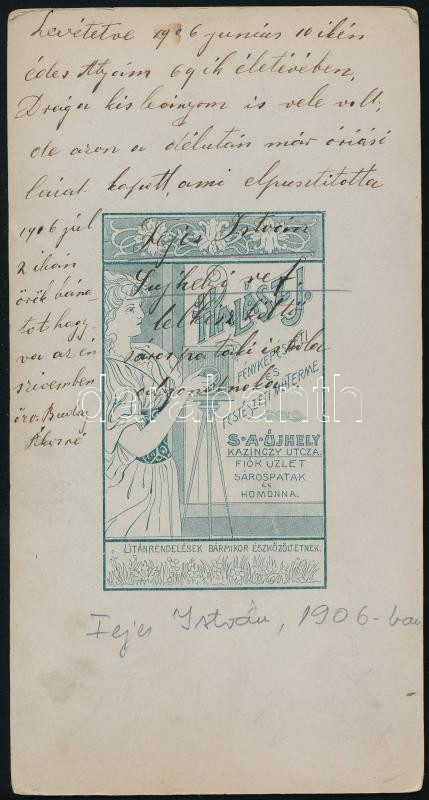 Levétetve 1906 junius 10 ikén
édes Atyám 69 ik életévében,
Drága kis leányom is vele volt,
de azon a délután már óriási
lázat kapott, ami elpusztitotta
1906 júl
2 ikán
örök bána-
tot hagy-
va az én
szivemben
özv. 
Fejes István
S.ujhelyi ref
lelkész költő
sárospataki iskola
gondnoka
Halász J.
FÉNYKÉPÉSZETI
ÉS
FESTÉSZETI MŰTERME
S.A.ÚJHELY
KAZINCZY UTCZA.
FIÓK ÜZLET
SÁROSPATAK
ÉS
HOMONNA.
UTÁNRENDELÉSEK BÁRMIKOR ESZKÖZÖLTETNEK.
darabanth
Fejes István, 1906-ban